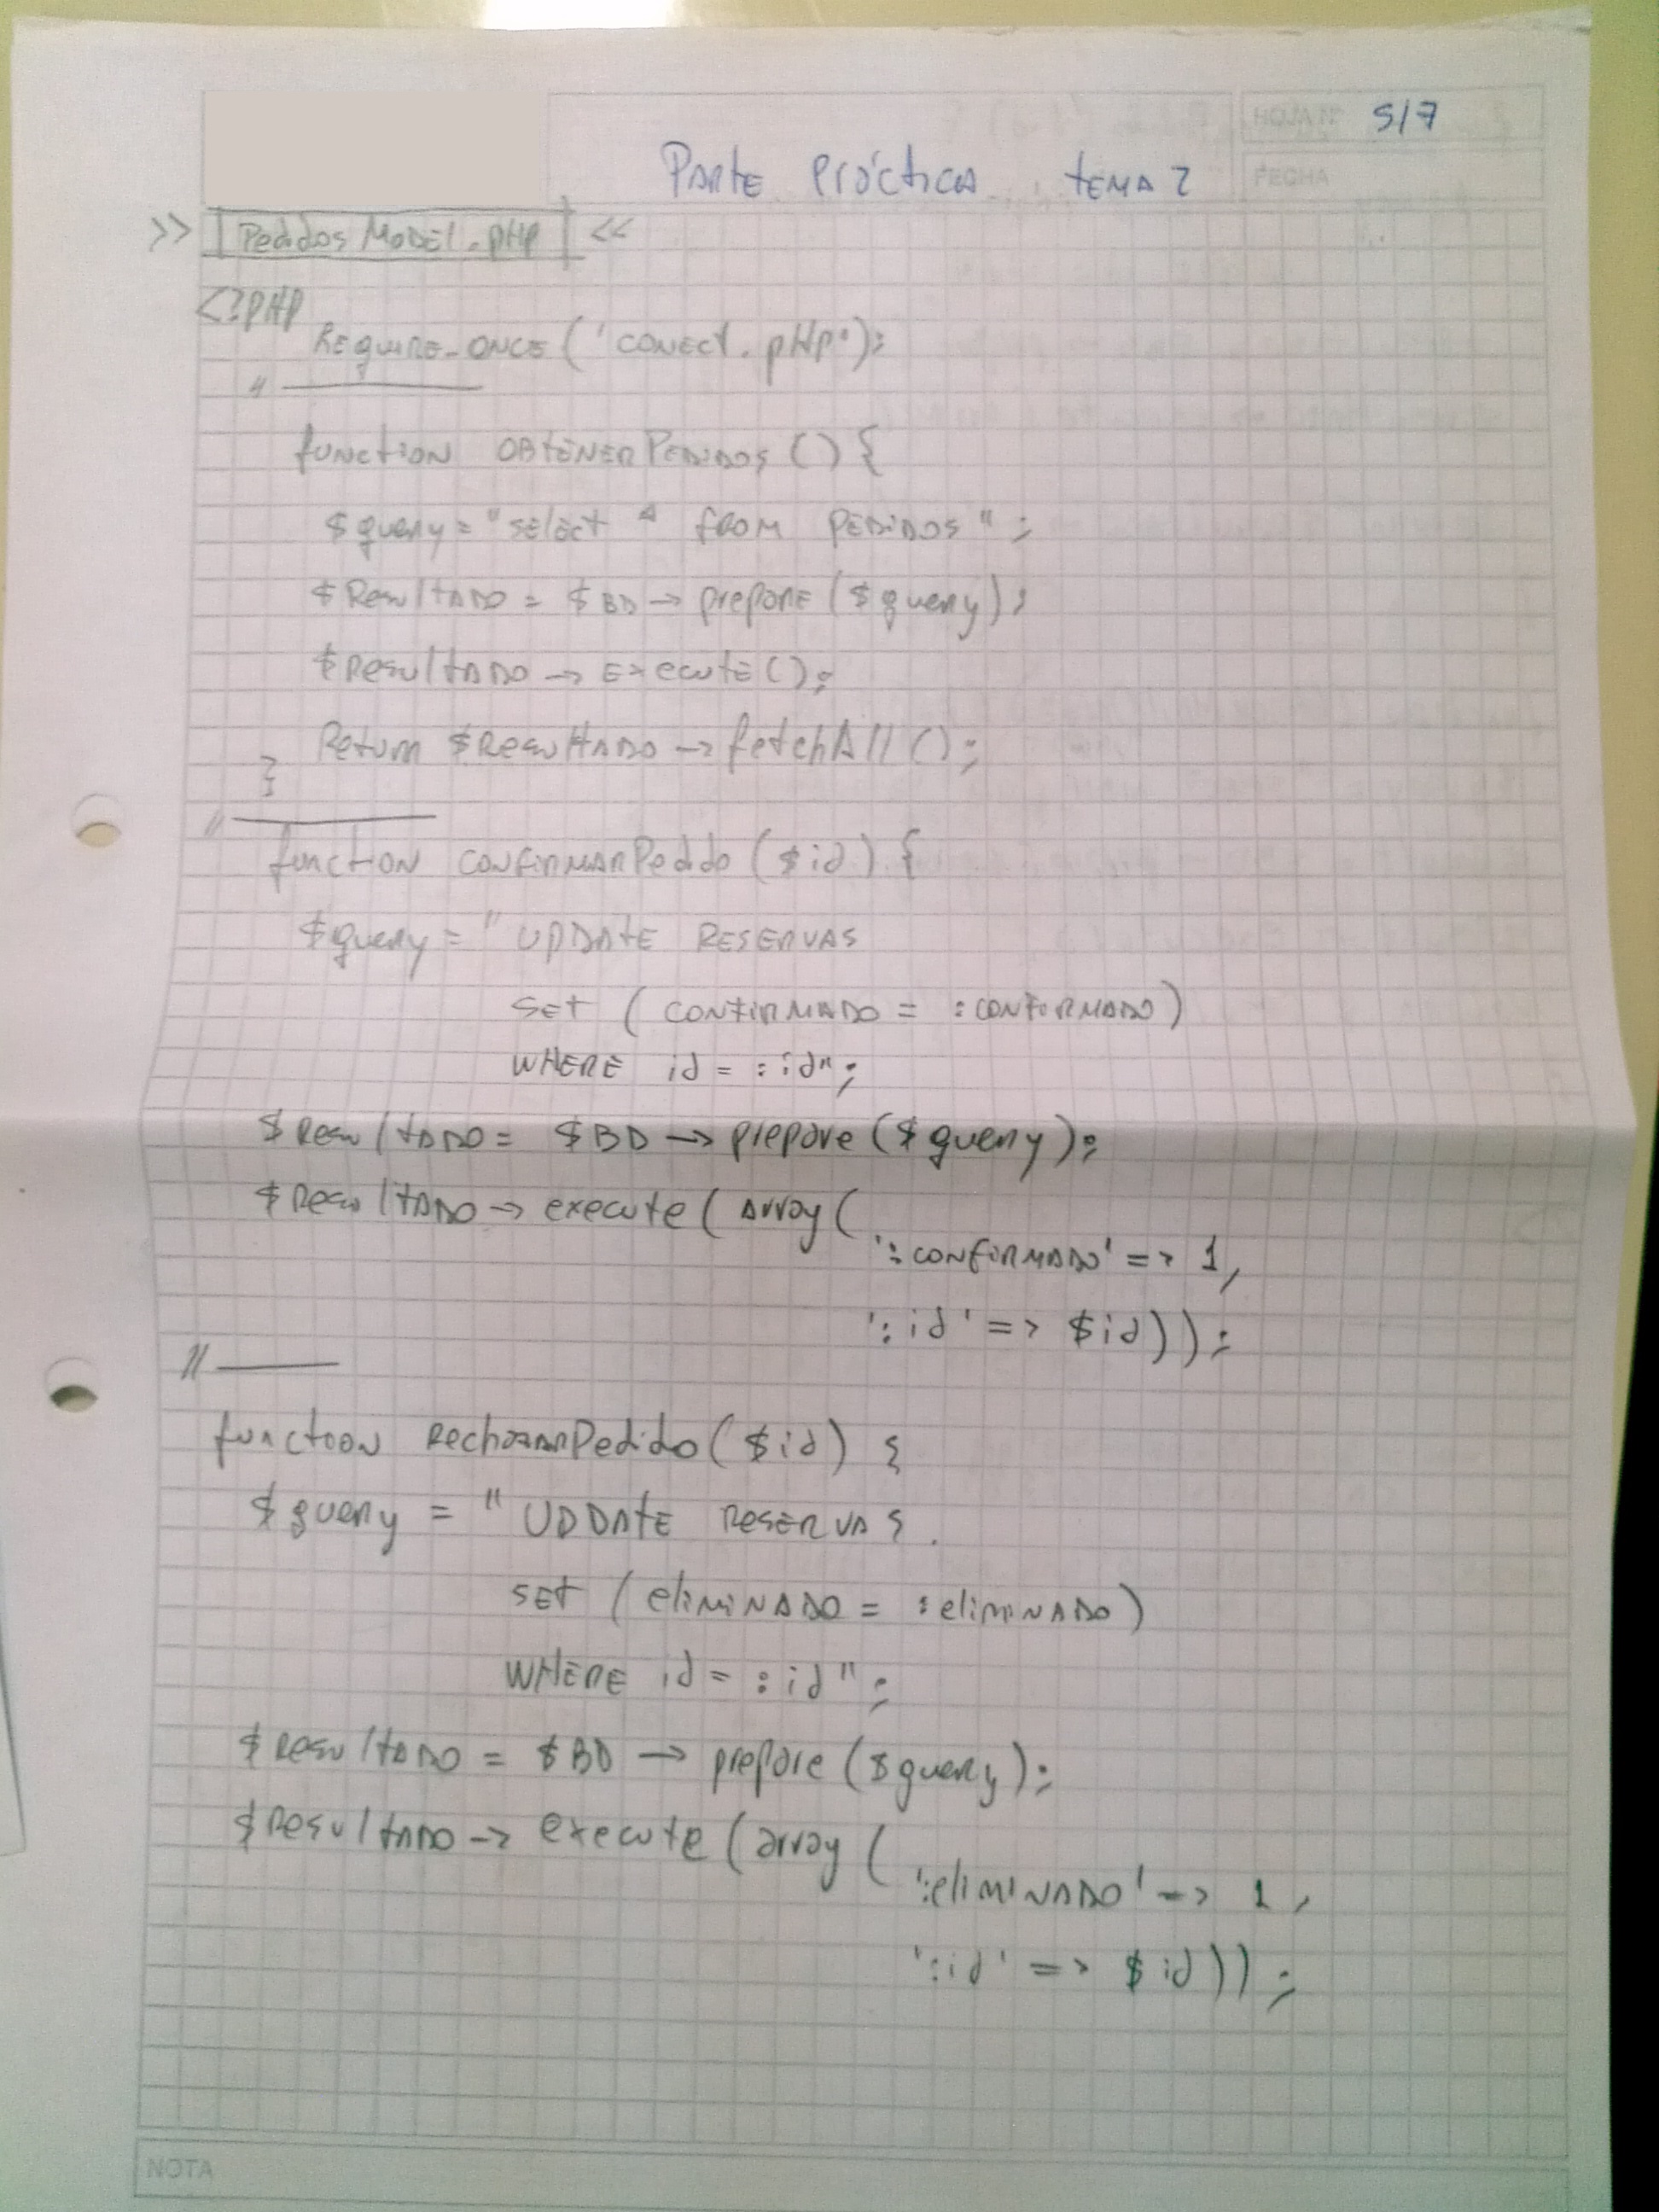 HOJA Nº 5/7
Parte Práctica tema 2
FECHA
>> Pedidos Model.pHp <<
<?pHp
Require_once('conect.pHp');
//
function obtenerPedidos() {
$query = "select * from pedidos";
$Resultado = $BD -> prepare($query);
$Resultado -> execute();
Return $Resultado -> fetchAll();
}
//
function confirmarPedido($id) {
$query = "UPDATE RESERVAS
SET (confirmado = :confirmado)
WHERE id = :id";
$Resultado = $BD -> prepare($query);
$Resultado -> execute(array(
':confirmado' => 1,
':id' => $id));
//
function RechazarPedido($id) {
$query = "UPDATE RESERVAS
SET (eliminado = :eliminado)
WHERE id = :id";
$Resultado = $BD -> prepare($query);
$Resultado -> execute(array(
':eliminado' => 1,
':id' => $id));
NOTA